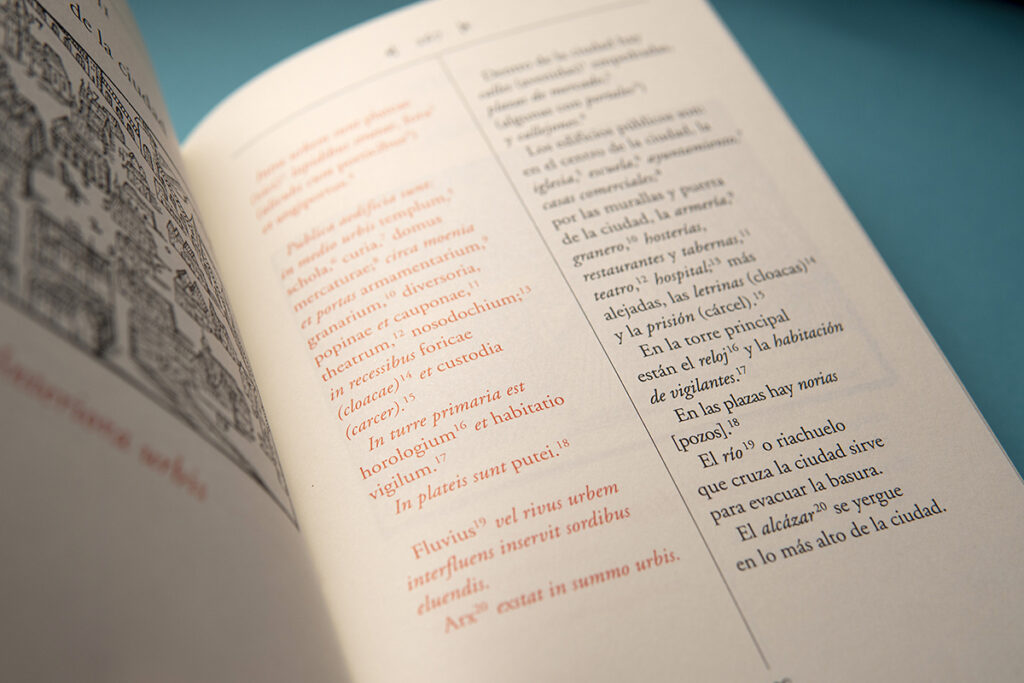 de la ciudad
Interiora urbis
Intra urbem sunt plateae
vici,² lapidibus strati, fora³
alicubi cum porticibus⁴)
et angiportus.⁵
Publica aedificia sunt:
in medio urbis templum,⁵
schola,⁶ curia,⁷ domus
mercaturae;⁸ circa moenia
et portas armamentarium,⁹
granarium,¹⁰ diversoria,
popinae et cauponae,¹¹
theatrum,¹² nosodochium;¹³
in recessibus foricae
(cloacae)¹⁴ et custodia
(carcer).¹⁵
In turre primaria est
horologium¹⁶ et habitatio
vigilum.¹⁷
In plateis sunt putei.¹⁸
Fluvius¹⁹ vel rivus urbem
interfluens inservit sordibus
eluendis.
Arx²⁰ exstat in summo urbis.
Dentro de la ciudad hay
calles (avenidas)¹ empedradas,
plazas de mercado,²
(algunas con portales³)
y callejones.⁴
Los edificios públicos son:
en el centro de la ciudad, la
iglesia,⁵ escuela,⁶ ayuntamiento,⁷
casas comerciales;⁸
por las murallas y puerta
de la ciudad, la armería,⁹
granero,¹⁰ hosterías,
restaurantes y tabernas,¹¹
teatro,¹² hospital;¹³ más
alejadas, las letrinas (cloacas)¹⁴
y la prisión (cárcel).¹⁵
En la torre principal
están el reloj¹⁶ y la habitación
de vigilantes.¹⁷
En las plazas hay norias
[pozos].¹⁸
El río¹⁹ o riachuelo
que cruza la ciudad sirve
para evacuar la basura.
El alcázar²⁰ se yergue
en lo más alto de la ciudad.